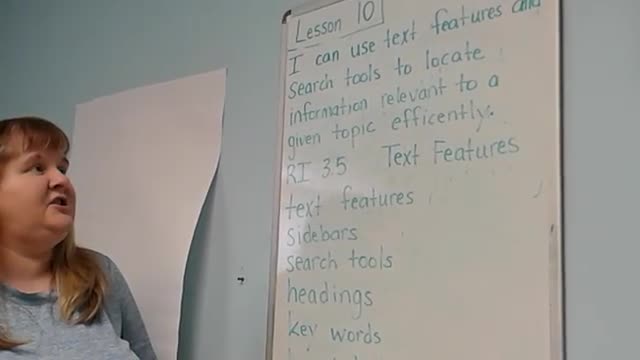 Lesson 10
I can use text features and
search tools to locate
information relevant to a
given topic efficently.
RI 3.5 Text Features
text features
sidebars
search tools
headings
key words